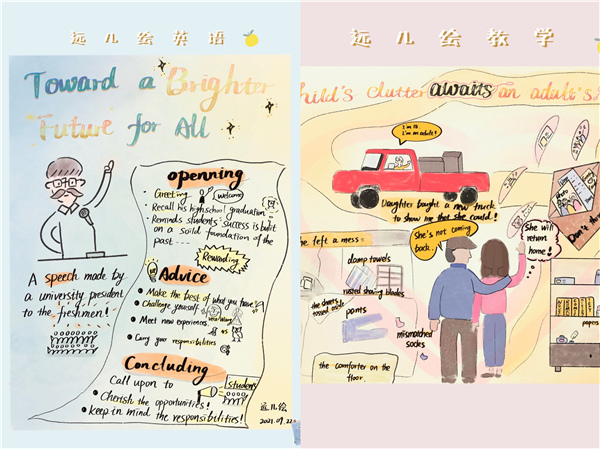 远儿绘英语
Toward a Brighter
Future for All
openning
Greeting
welcome
Recall his highschool graduation
Reminds students' success is built
on a solid foundation of the
past ----
Rewarding
Advice
Make the best of what you have
Challenge yourself
Meet new experiences
VS
Carry your responsibilities
Concluding
Call upon to
students
Cherish the opportunities!
keep in mind the responsibilities!
A speech made by
a university president
to the freshmen!
远儿绘
2021.09.22
远儿绘教学
hild's clutter awaits an adult's
I'm 18
I'm an adult!
Daughter bought a new truck
to show me that she could!
he left a mess
She's not coming
back..
She will
return
home!
Don't
damp towels
rusted shaving blades
pants
mismatched
socks
papers
the comforter on the
floor.